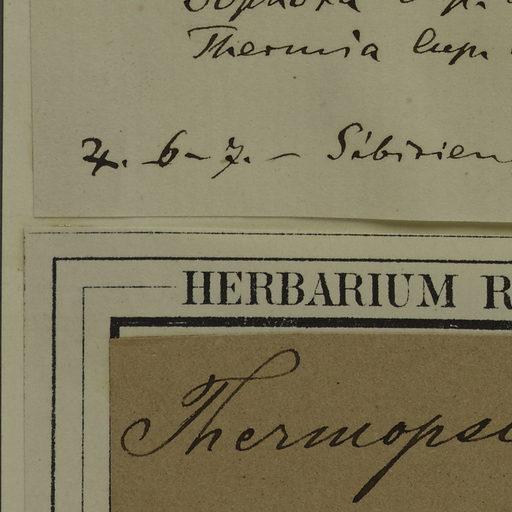 Thermia lup.
4. 6-7. – Sibirien
HERBARIUM R
Thermopsi